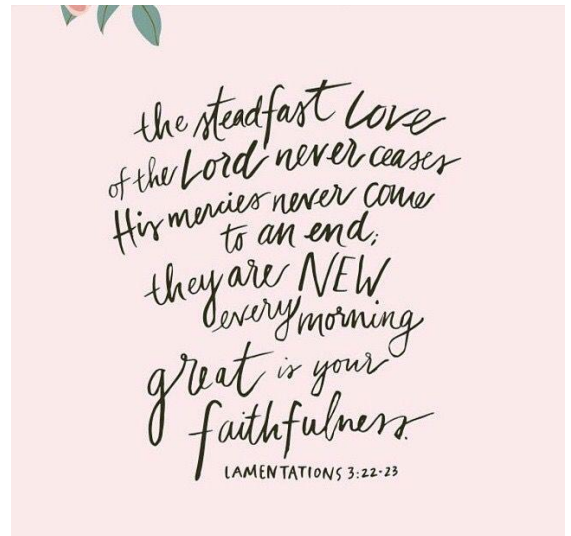 the steadfast love
of the Lord never ceases
His mercies never come
to an end;
they are NEW
every morning
great is your
faithfulness.
LAMENTATIONS 3:22-23